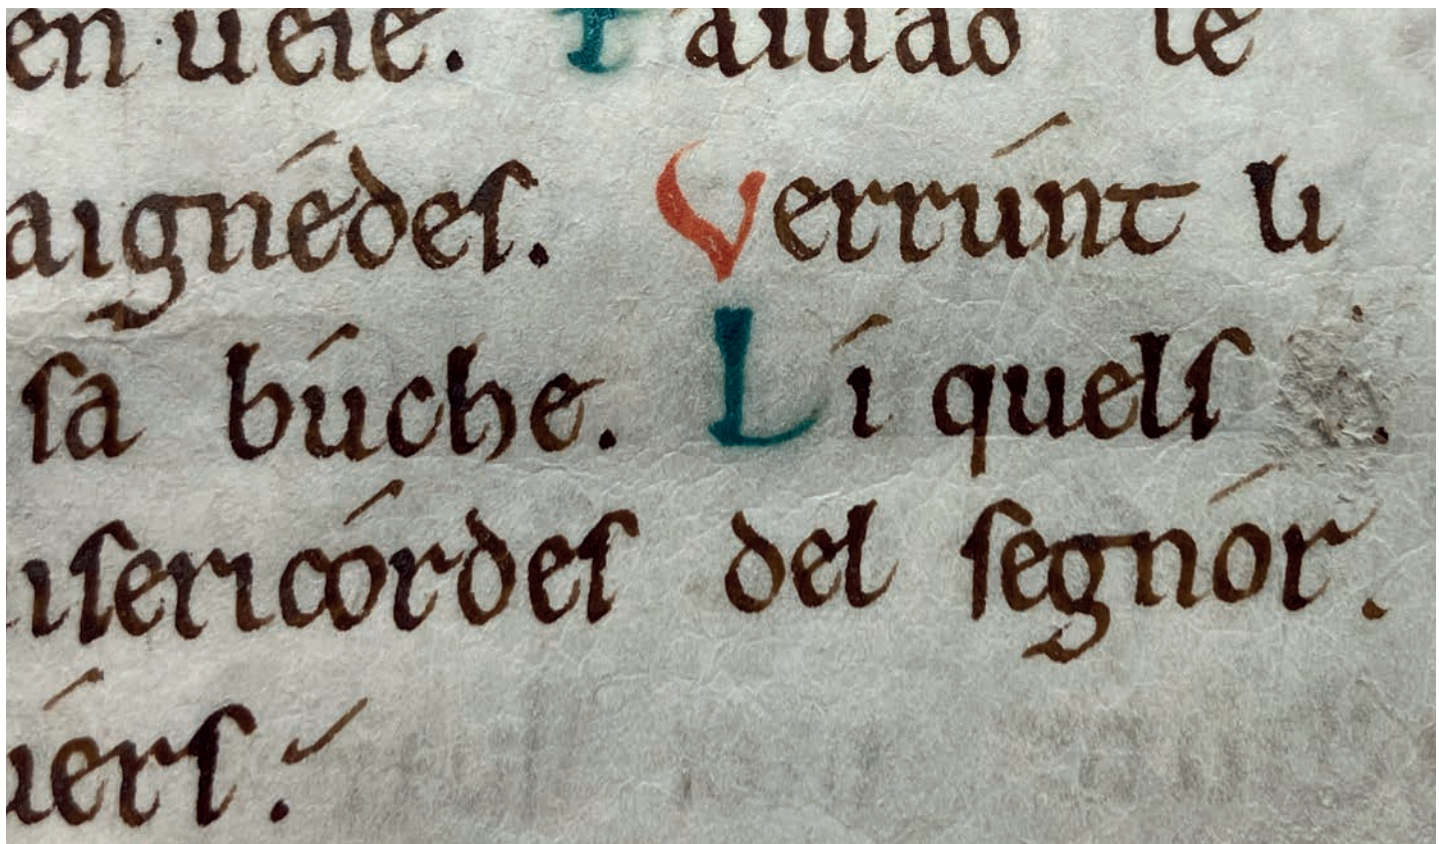 en ueie. aiuad le
aignédeſ. Verrúnt li
ſa búche. Lí quelſ .
iſericórdeſ del ſegnór.
uérſ.